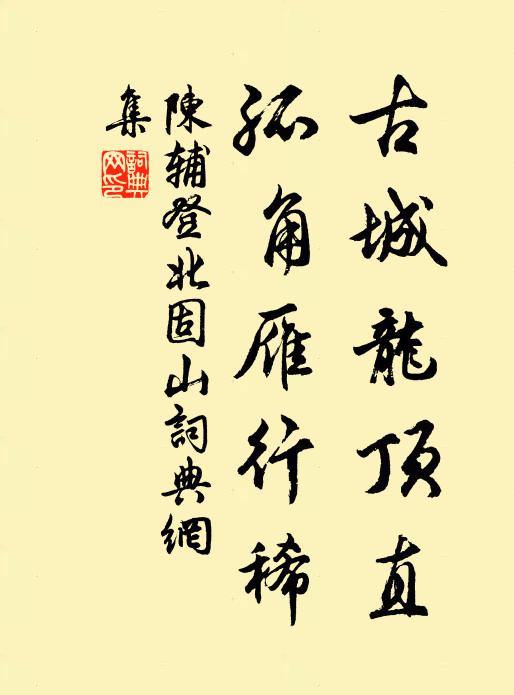 古城龍頂直
孤角雁行稀
陳輔登北固山詞典網
集
詞典
网印